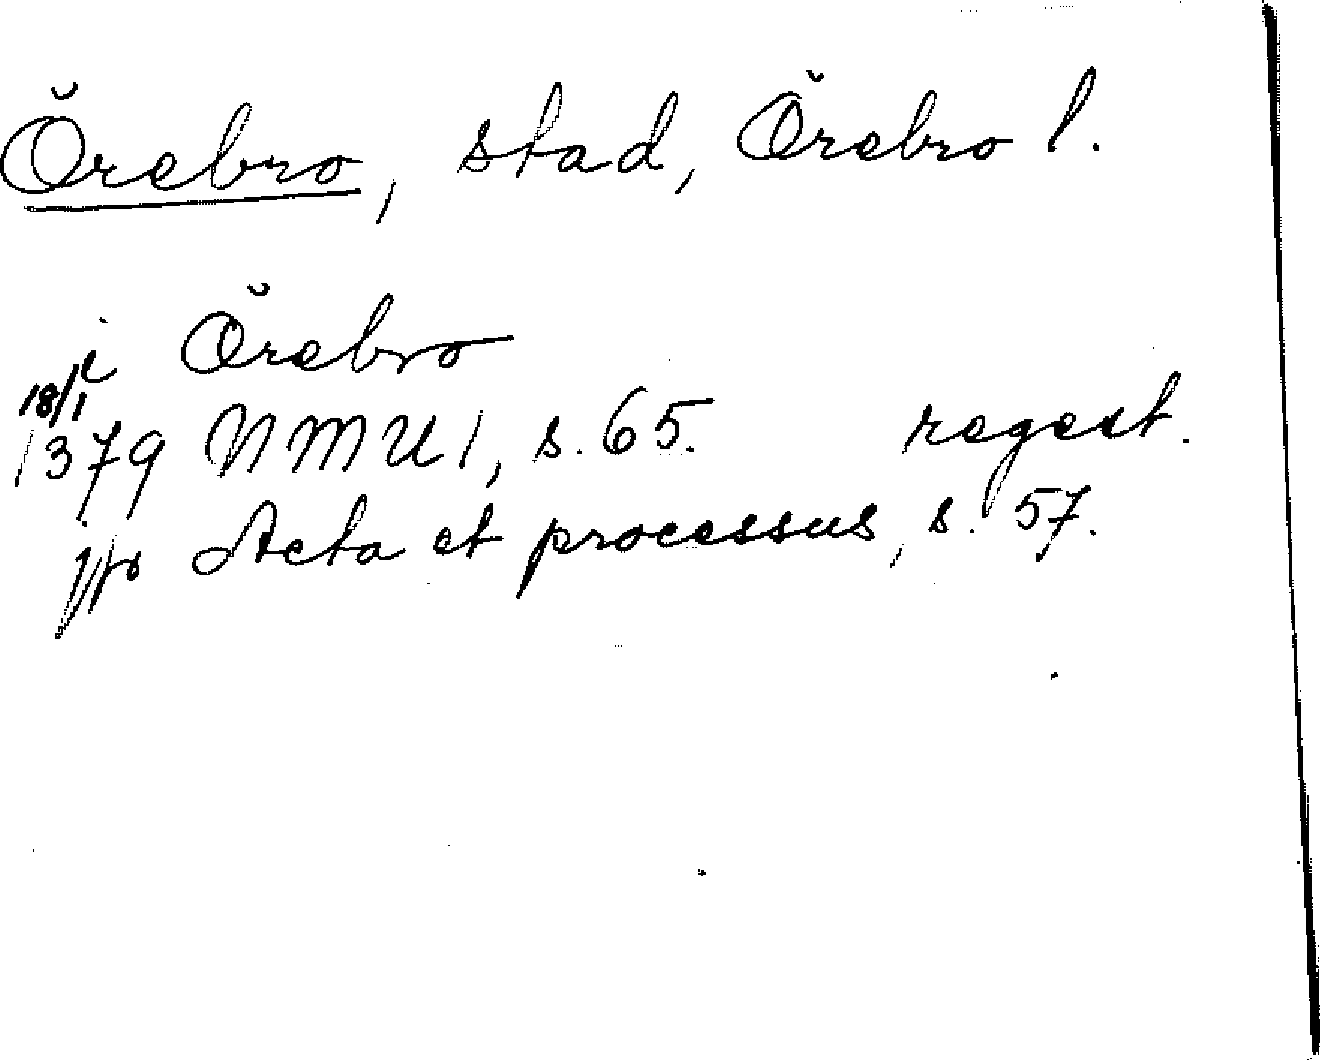 Örebro, stad, Örebro l.
i Örebro
18/1
1379 NMU 1, s. 65. regest.
jfr Acta et processus, s. 57.